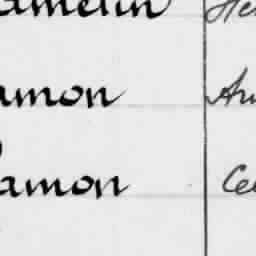 amelin He
amon Ar
amon Ce